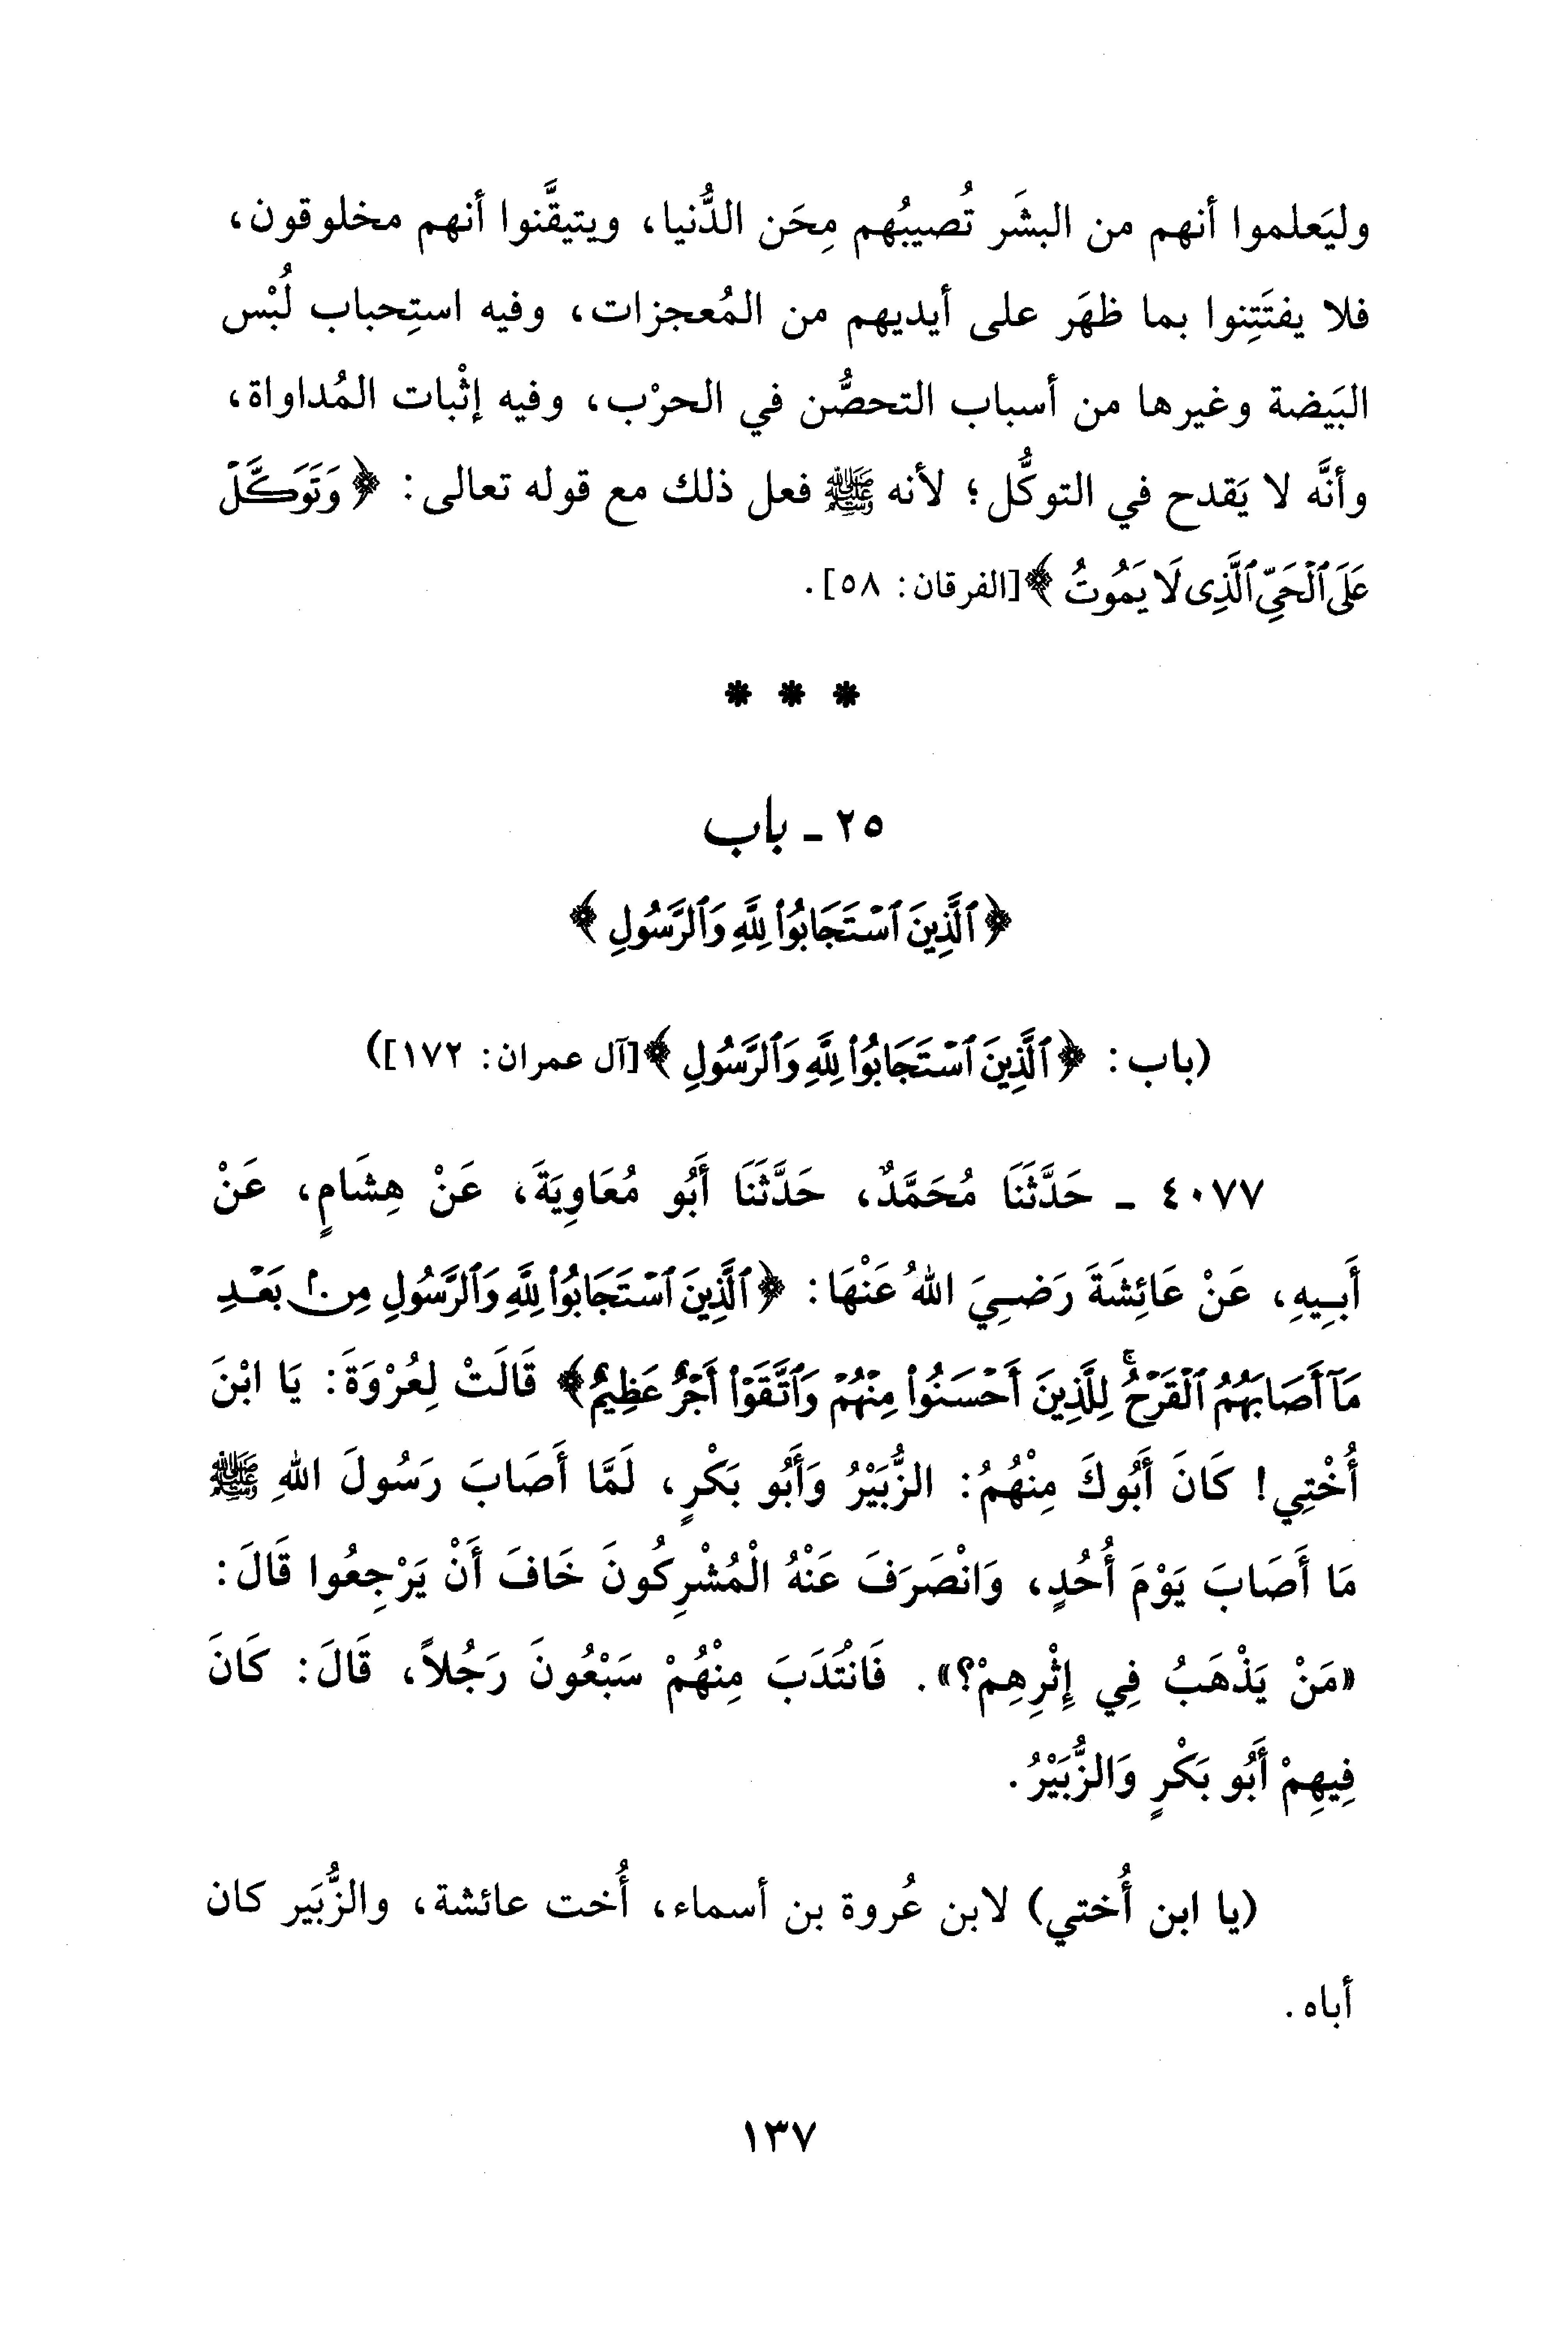 وليَعلموا أنهم من البشَر تُصيبُهم مِحَن الدُّنيا، ويتيقَّنوا أنهم مخلوقون،
فلا يفتَتِنوا بما ظهَر على أيديهم من المُعجزات، وفيه استِحباب لُبْس
البَيضة وغيرها من أسباب التحصُّن في الحرْب، وفيه إثْبات المُداواة،
وأنَّه لا يَقدح في التوكُّل؛ لأنه ﷺ فعل ذلك مع قوله تعالى: ﴿وَتَوَكَّلۡ
عَلَى ٱلۡحَيِّ ٱلَّذِى لَا يَمُوتُ﴾[الفرقان: ٥٨].
* * *
٢٥ ـ باب
﴿ٱلَّذِينَ ٱسۡتَجَابُواْ لِلَّهِ وَٱلرَّسُولِ﴾
(باب: ﴿ٱلَّذِينَ ٱسۡتَجَابُواْ لِلَّهِ وَٱلرَّسُولِ﴾[آل عمران: ١٧٢])
٤٠٧٧ ـ حَدَّثَنَا مُحَمَّدٌ، حَدَّثَنَا أَبُو مُعَاوِيَةَ، عَنْ هِشَامٍ، عَنْ
أَبِيهِ، عَنْ عَائِشَةَ رَضِيَ اللهُ عَنْهَا: ﴿ٱلَّذِينَ ٱسۡتَجَابُواْ لِلَّهِ وَٱلرَّسُولِ مِنۢ بَعۡدِ
مَآ أَصَابَهُمُ ٱلۡقَرۡحُۚ لِلَّذِينَ أَحۡسَنُواْ مِنۡهُمۡ وَٱتَّقَوۡاْ أَجۡرٌ عَظِيمٌ﴾ قَالَتْ لِعُرْوَةَ: يَا ابْنَ
أُخْتِي! كَانَ أَبُوكَ مِنْهُمُ: الزُّبَيْرُ وَأَبُو بَكْرٍ، لَمَّا أَصَابَ رَسُولَ اللهِ ﷺ
مَا أَصَابَ يَوْمَ أُحُدٍ، وَانْصَرَفَ عَنْهُ الْمُشْرِكُونَ خَافَ أَنْ يَرْجِعُوا قَالَ:
«مَنْ يَذْهَبُ فِي إِثْرِهِمْ؟». فَانْتَدَبَ مِنْهُمْ سَبْعُونَ رَجُلاً، قَالَ: كَانَ
فِيهِمْ أَبُو بَكْرٍ وَالزُّبَيْرُ.
(يا ابن أُختي) لابن عُروة بن أسماء، أُخت عائشة، والزُّبَير كان
أباه.
١٣٧